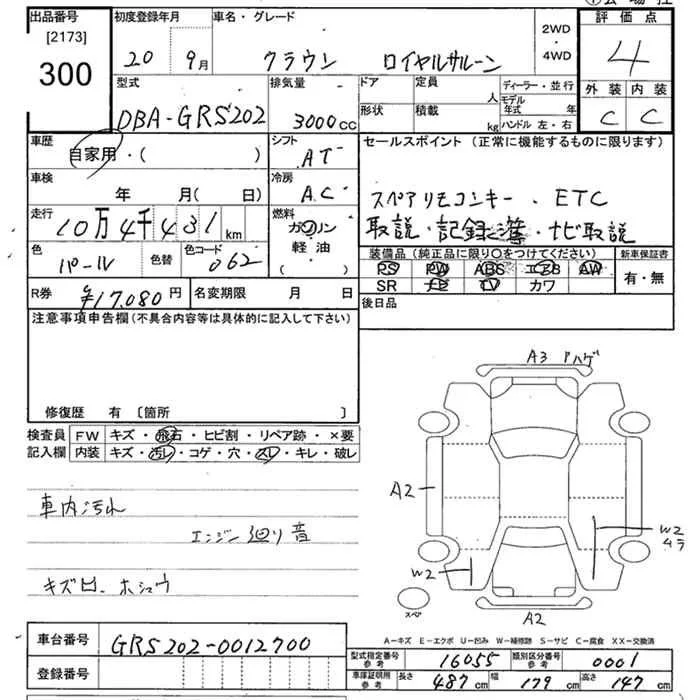 出品番号 初度登録年月 車名・グレード 評価点
[2173] 20 9月 クラウン ロイヤルサルーン 2WD・4WD 4
300
型式 排気量 ドア 定員 人 ディーラー・並行 外装 内装
DBA-GRS202 3000cc 形状 積載 kg モデル年式 年 ハンドル 左・右 C C
車歴 自家用・( ) シフト AT
セールスポイント (正常に機能するものに限ります)
車検 年 月(日) 冷房 AC
スペアリモコンキー・ETC
走行 10万4千431km 燃料 ガソリン 軽油 ( )
取説・記録簿・ナビ取説
色 パール 色替 色コード 062
装備品 (純正品に限り〇をつけてください) 新車保証書
PS PW ABS エアB AW 有・無
SR ナビ TV カワ
R券 ¥17,080円 名変期限 月 日 後日品
注意事項申告欄 (不具合内容等は具体的に記入して下さい)
修復歴 有 [箇所 ]
検査員 FW キズ・飛石・ヒビ割・リペア跡・×要
記入欄 内装 キズ・汚レ・コゲ・穴・スレ・キレ・破レ
車内汚れ
エンジン廻り音
キズ凹、ホシュウ
A3 ハゲ
A2
W2
W2
キラ
スペア
A2
A-キズ E-エクボ U-凹み W-補修跡 S-サビ C-腐食 XX-交換済
車台番号 GRS202-0012700
登録番号
型式指定番号 参考 16055 類別区分番号 参考 0001
車庫証明用 参考 長さ 487cm 幅 179cm 高さ 147cm